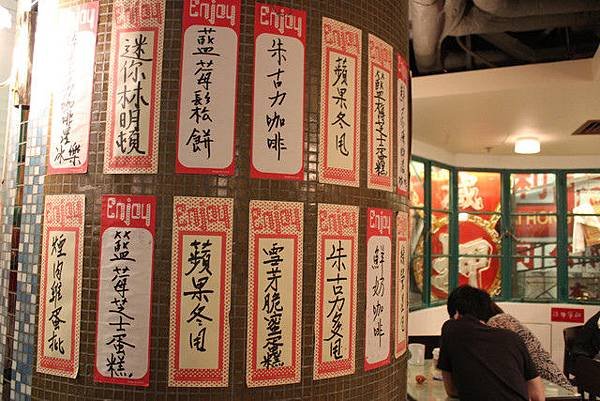 Enjoy
迷你林明頓
Enjoy
藍莓鬆餅
Enjoy
朱古力咖啡
蘋果冬甩
藍莓芝士蛋糕
Enjoy
煙肉雞蛋批
Enjoy
藍莓芝士蛋糕
Enjoy
蘋果冬甩
Enjoy
雪芽脆蜜蛋糕
Enjoy
朱古力冬甩
Enjoy
鮮奶咖啡